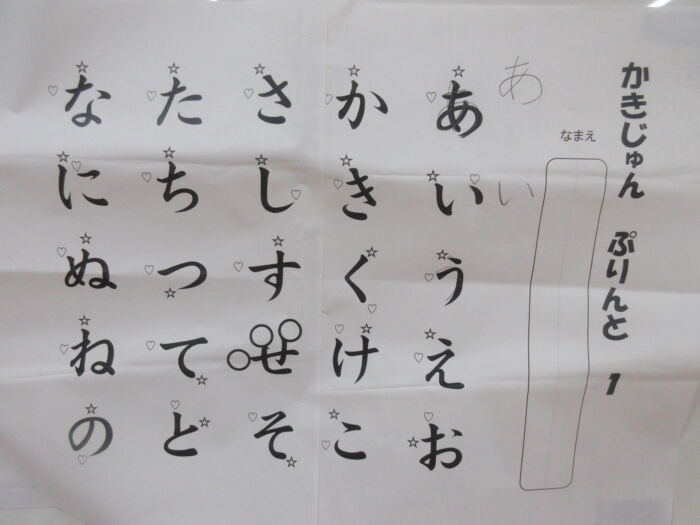 かきじゅん ぷりんと 1
なまえ
あ い
あ い う え お
か き く け こ
さ し す せ そ
た ち つ て と
な に ぬ ね の